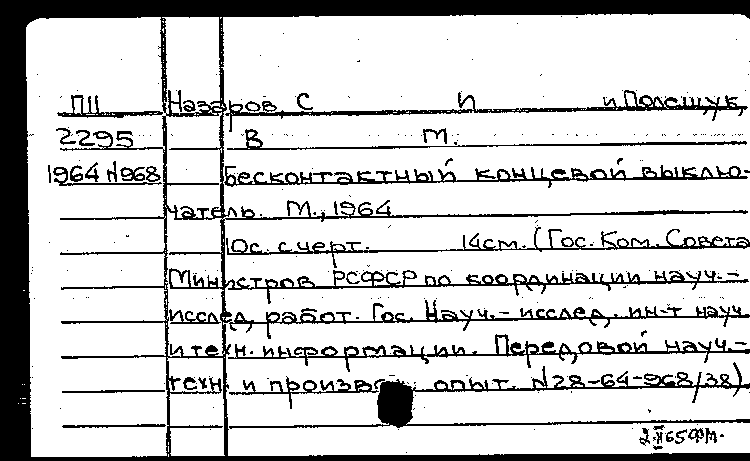 П11 Назаров, С И и Полещук,
2295 В М.
1964 №968 Бесконтактный концевой выклю-
чатель. М., 1964
10с. с черт. 14см. (Гос. Ком. Совета
Министров РСФСР по координации науч.-
исслед. работ. Гос. Науч.-исслед. ин-т науч.
и техн. информации. Передовой науч.-
техн. и опыт. №28-64-968/38)